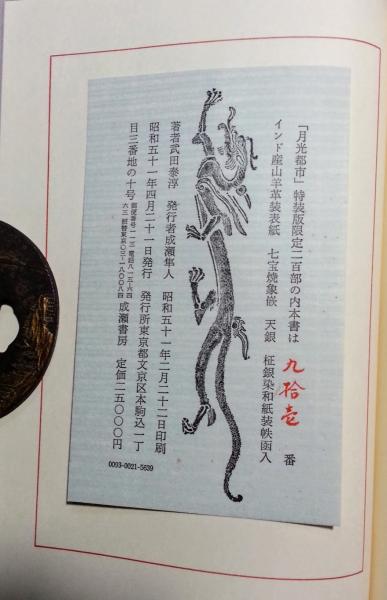 「月光都市」特装版限定二百部の内本書は 九拾壱 番
インド産山羊革装表紙 七宝焼象嵌 天銀 柾銀染和紙装帙函入
著者武田泰淳 発行者成瀬隼人 昭和五十一年二月二十二日印刷
昭和五十一年四月二十一日発行 発行所東京都文京区本駒込一丁
目三番地の十号 郵便番号一一三 電話八一五-六四六三 振替東京〇三-一八〇〇八四 成瀬書房 定価二五〇〇〇円
0093-0021-5639